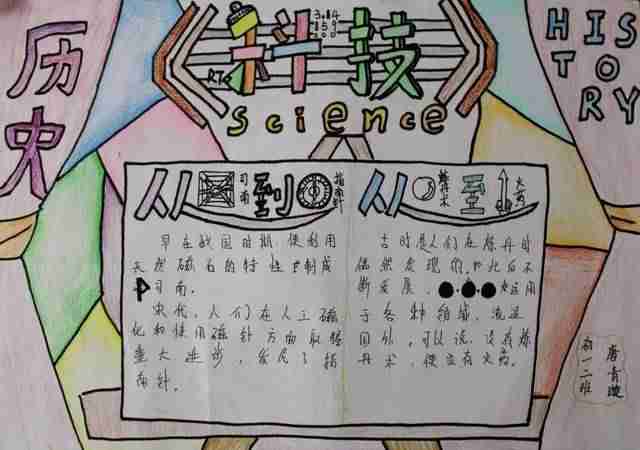 历史
科技
3.14
15 9
RT
science
HIS
TO
RY
从司南到指南针
早在战国时期,便利用
天然磁石的特性制成
司南。
宋代,人们在人工磁
化和使用磁针方面取得
重大进步,发展了指
南针。
从炼丹术到火药
古时是人们在炼丹时
偶然发现的,此后不
断发展,
运用
于各种领域,流返
国外,可以说,没有炼
丹术,便没有火药。
初一二班